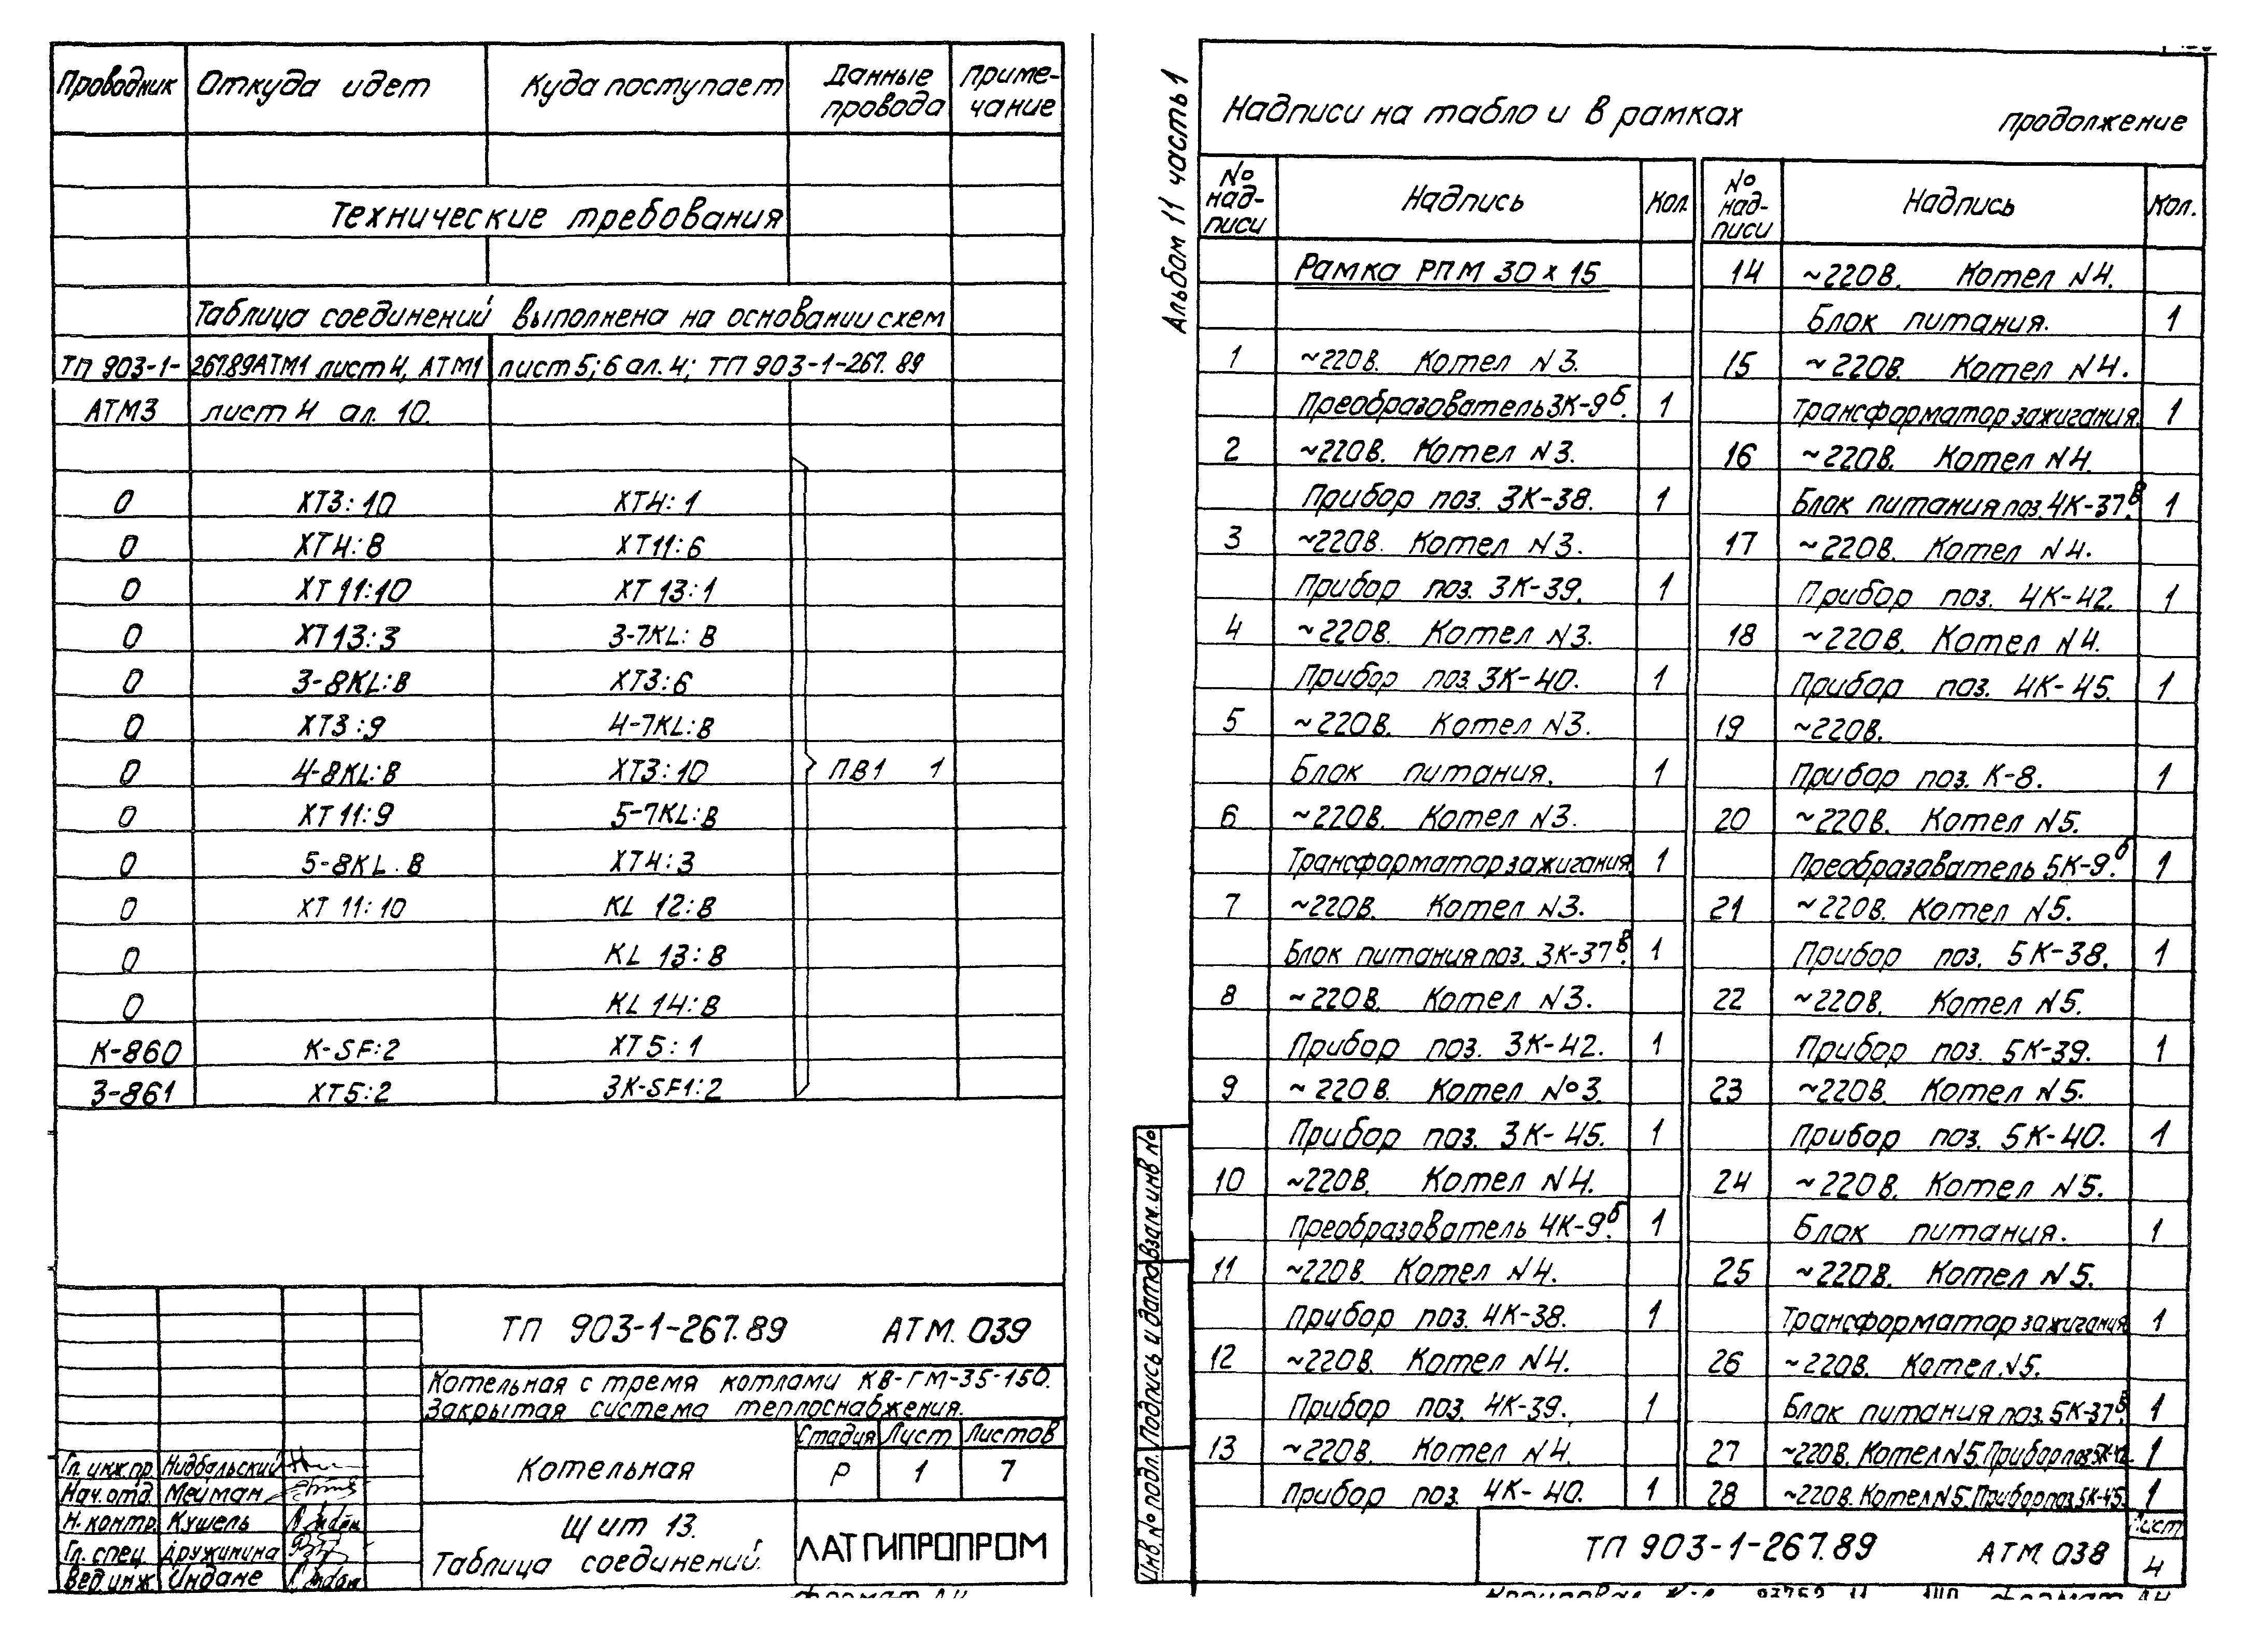 Проводник Откуда идет Куда поступает Данные провода Приме-чание
Технические требования
Таблица соединений выполнена на основании схем
ТП 903-1-267.89АТМ1 лист 4, АТМ1 лист 5; 6 ал. 4; ТП 903-1-267.89
АТМ3 лист 4 ал. 10.
0 ХТ3:10 ХТ4:1
0 ХТ4:8 ХТ11:6
0 ХТ11:10 ХТ13:1
0 ХТ13:3 3-7KL:В
0 3-8KL:В ХТ3:6
0 ХТ3:9 4-7KL:В
0 4-8KL:В ХТ3:10 ПВ1 1
0 ХТ11:9 5-7KL:В
0 5-8KL.В ХТ4:3
0 ХТ11:10 KL12:В
0 KL13:В
0 KL14:В
К-860 К-SF:2 ХТ5:1
3-861 ХТ5:2 3К-SF1:2
ТП 903-1-267.89 АТМ. 039
Котельная с тремя котлами КВ-ГМ-35-150.
Закрытая система теплоснабжения.
Стадия Лист Листов
Котельная Р 1 7
Гл. инж.пр. Нидбальский
Нач. отд. Мейман
Н. контр. Кушель
Гл. спец. Дружинина
Вед.инж. Индане
Щит 13.
Таблица соединений.
ЛАТГИПРОПРОМ
Формат А4
Альбом 11 часть 1
Надписи на табло и в рамках продолжение
№ над-писи Надпись Кол. № над-писи Надпись Кол.
Рамка РПМ 30х15
1 ~220В. Котел N3.
Преобразователь 3К-9б. 1
2 ~220В. Котел N3.
Прибор поз. 3К-38. 1
3 ~220В. Котел N3.
Прибор поз. 3К-39. 1
4 ~220В. Котел N3.
Прибор поз. 3К-40. 1
5 ~220В. Котел N3.
Блок питания. 1
6 ~220В. Котел N3.
Трансформатор зажигания 1
7 ~220В. Котел N3.
Блок питания поз. 3К-37в. 1
8 ~220В. Котел N3.
Прибор поз. 3К-42. 1
9 ~220В. Котел №3.
Прибор поз. 3К-45. 1
10 ~220В. Котел N4.
Преобразователь 4К-9б. 1
11 ~220В. Котел N4.
Прибор поз. 4К-38. 1
12 ~220В. Котел N4.
Прибор поз. 4К-39. 1
13 ~220В. Котел N4.
Прибор поз. 4К-40. 1
14 ~220В. Котел N4.
Блок питания. 1
15 ~220В. Котел N4.
Трансформатор зажигания. 1
16 ~220В. Котел N4.
Блок питания поз. 4К-37в. 1
17 ~220В. Котел N4.
Прибор поз. 4К-42. 1
18 ~220В. Котел N4.
Прибор поз. 4К-45. 1
19 ~220В.
Прибор поз. К-8. 1
20 ~220В. Котел N5.
Преобразователь 5К-9б. 1
21 ~220В. Котел N5.
Прибор поз. 5К-38. 1
22 ~220В. Котел N5.
Прибор поз. 5К-39. 1
23 ~220В. Котел N5.
Прибор поз. 5К-40. 1
24 ~220В. Котел N5.
Блок питания. 1
25 ~220В. Котел N5.
Трансформатор зажигания 1
26 ~220В. Котел N5.
Блок питания поз. 5К-37в. 1
27 ~220В. Котел N5. Прибор поз. 5К-42. 1
28 ~220В. Котел N5. Прибор поз. 5К-45. 1
Инв. № подл. Подпись и дата Взам. инв №
ТП 903-1-267.89 АТМ. 038
Лист
4
Формат А4